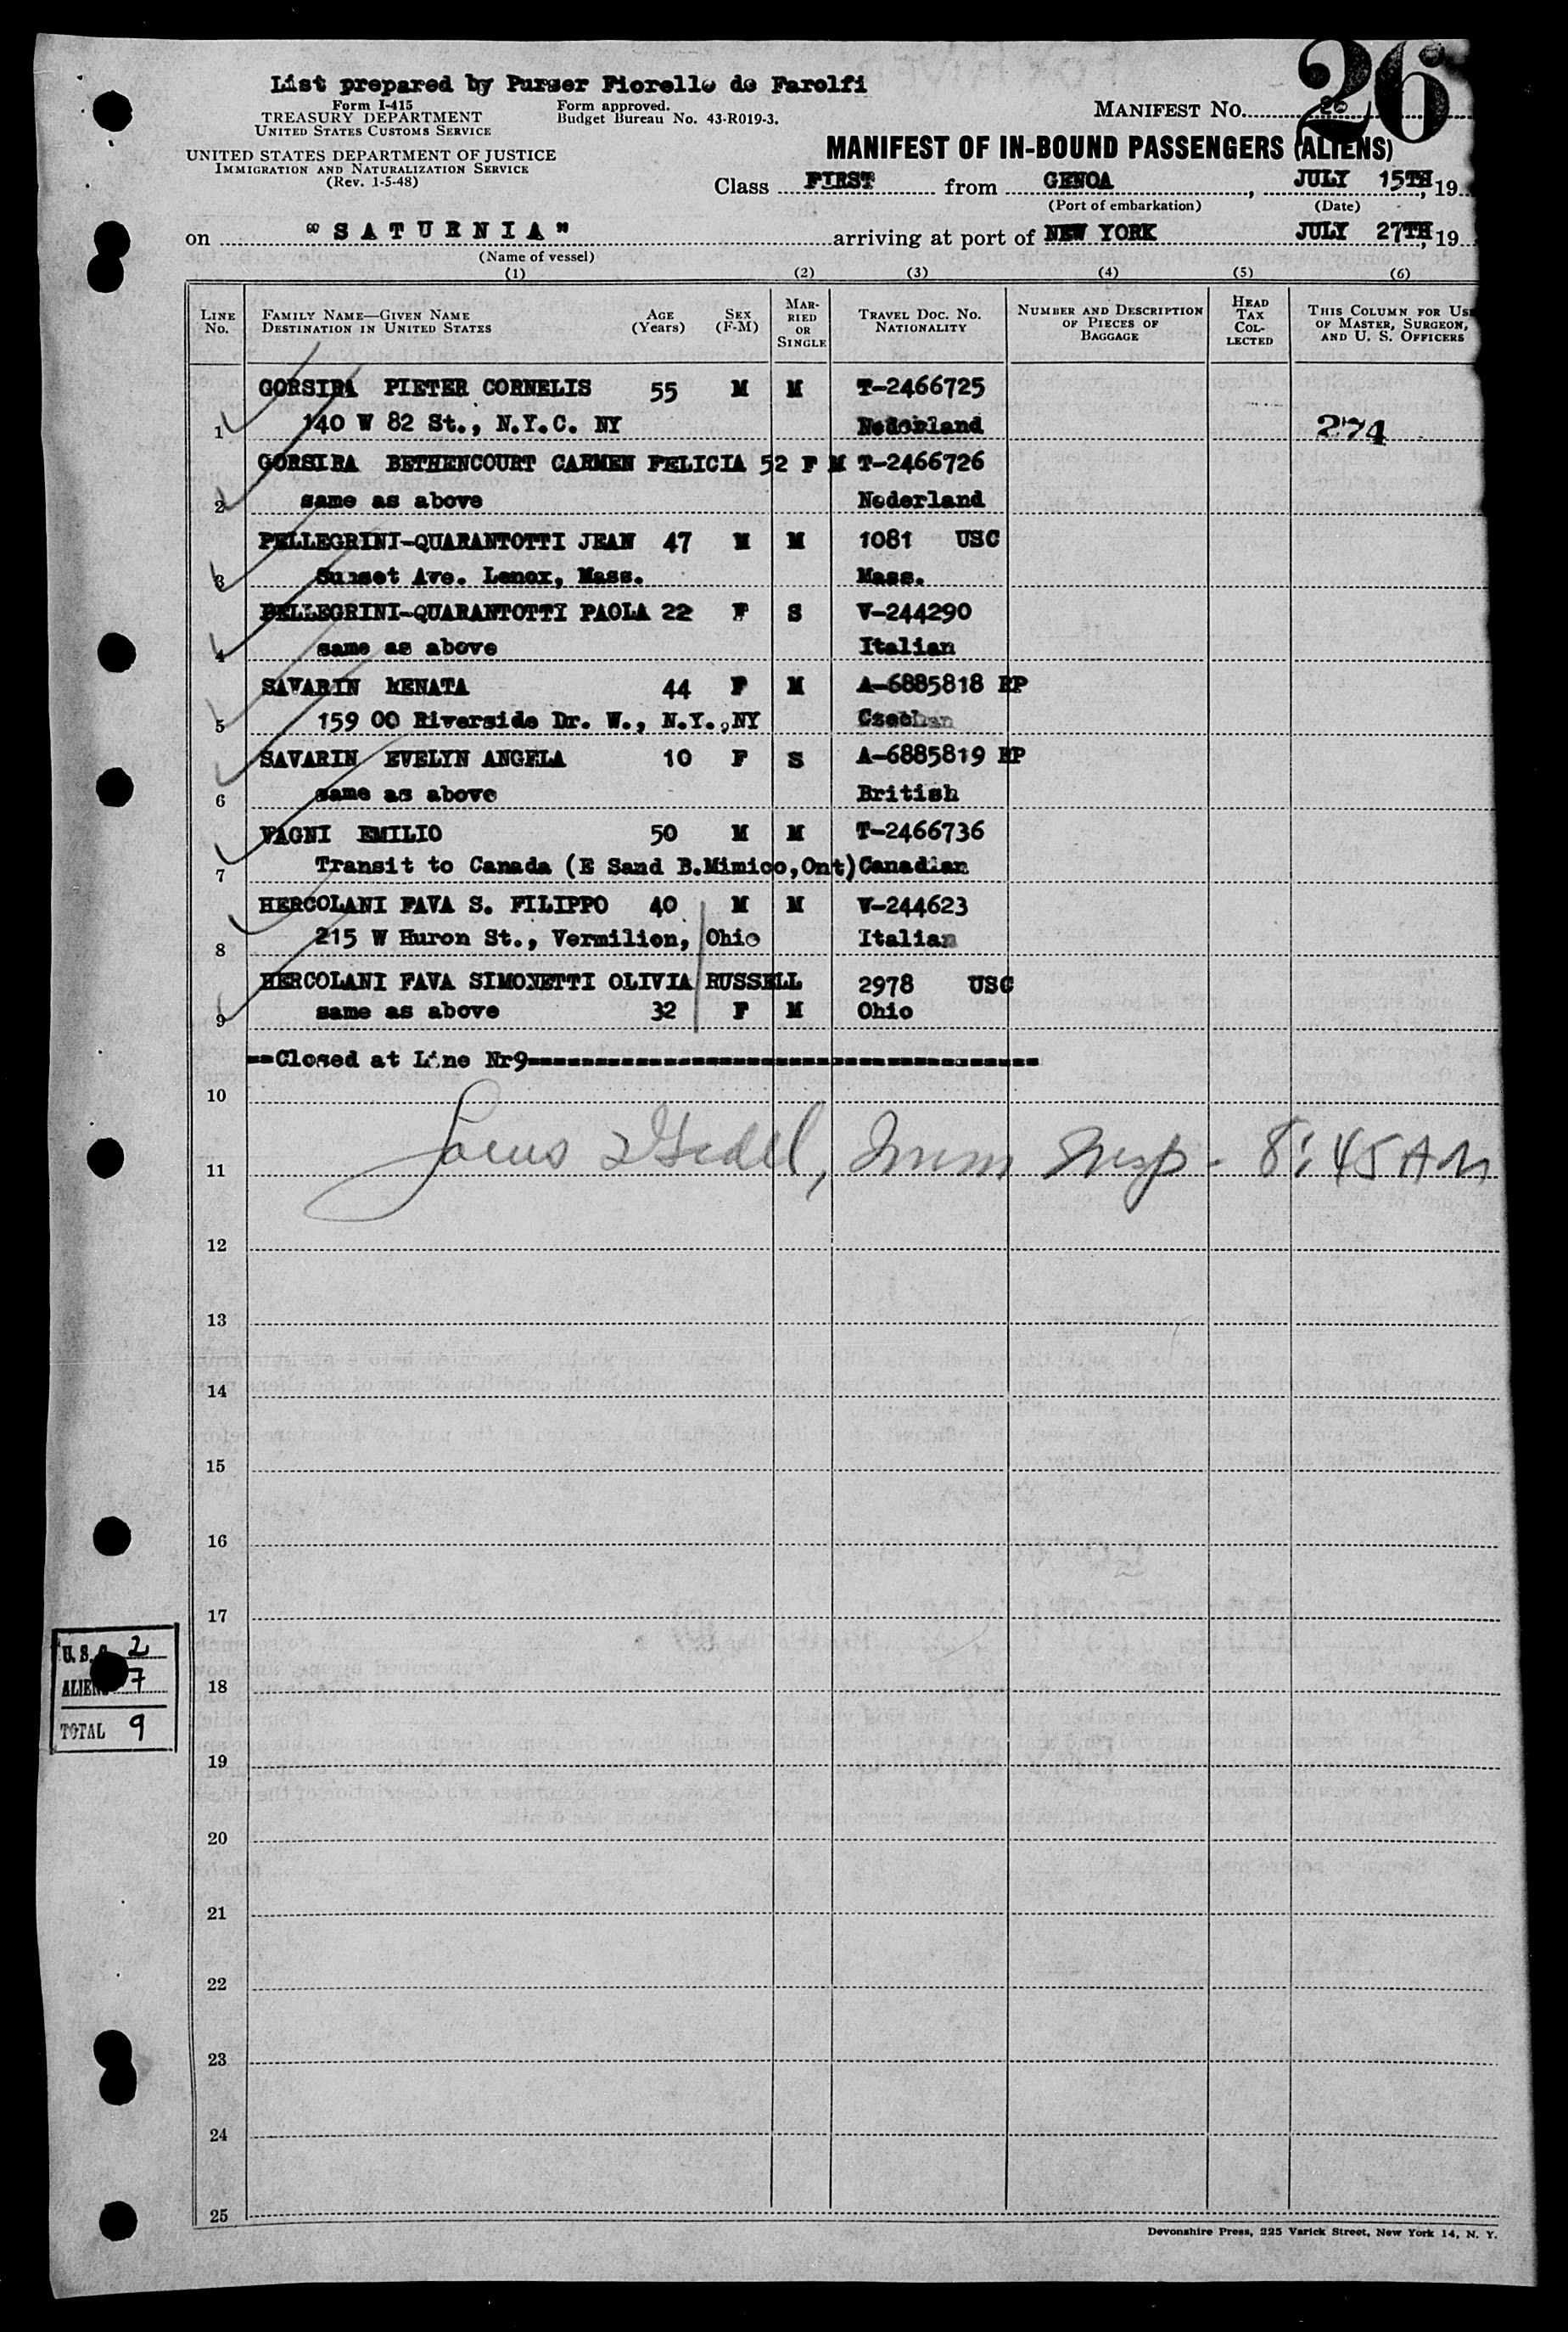 List prepared by Purser Fiorello de Farolfi
26
Form I-415
TREASURY DEPARTMENT
UNITED STATES CUSTOMS SERVICE
Form approved.
Budget Bureau No. 43-R019-3.
MANIFEST NO. 26
UNITED STATES DEPARTMENT OF JUSTICE
IMMIGRATION AND NATURALIZATION SERVICE
(Rev. 1-5-48)
MANIFEST OF IN-BOUND PASSENGERS (ALIENS)
Class FIRST from GENOA, JULY 15TH, 19
(Port of embarkation) (Date)
on "SATURNIA" arriving at port of NEW YORK JULY 27TH, 19
(Name of vessel)
(1) (2) (3) (4) (5) (6)
LINE No. FAMILY NAME—GIVEN NAME DESTINATION IN UNITED STATES AGE (Years) SEX (F-M) MARRIED OR SINGLE TRAVEL DOC. NO. NATIONALITY NUMBER AND DESCRIPTION OF PIECES OF BAGGAGE HEAD TAX COLLECTED THIS COLUMN FOR US OF MASTER, SURGEON, AND U. S. OFFICERS
GORSIRA PIETER CORNELIS 55 M M T-2466725
1 140 W 82 St., N.Y.C. NY Nederland 274
GORSIRA BETHENCOURT CARMEN FELICIA 52 F M T-2466726
2 same as above Nederland
PELLEGRINI-QUARANTOTTI JEAN 47 M M 1081 USC
3 Sunset Ave. Lenox, Mass. Mass.
PELLEGRINI-QUARANTOTTI PAOLA 22 F S V-244290
4 same as above Italian
SAVARIN RENATA 44 F M A-6885818 RP
5 159 00 Riverside Dr. W., N.Y.,NY Czechan
SAVARIN EVELYN ANGELA 10 F S A-6885819 RP
6 same as above British
VAGNI EMILIO 50 M M T-2466736
7 Transit to Canada (E Sand B.Mimico,Ont) Canadian
HERCOLANI FAVA S. FILIPPO 40 M M V-244623
8 215 W Huron St., Vermilion, Ohio Italian
HERCOLANI FAVA SIMONETTI OLIVIA RUSSELL 2978 USC
9 same as above 32 F M Ohio
==Closed at Line Nr9==================================
10
11 Imm Insp - 8:45 AM
12
13
14
15
16
17
U. S. 2
ALIENS 7
TOTAL 9
18
19
20
21
22
23
24
25
Devonshire Press, 225 Varick Street, New York 14, N. Y.